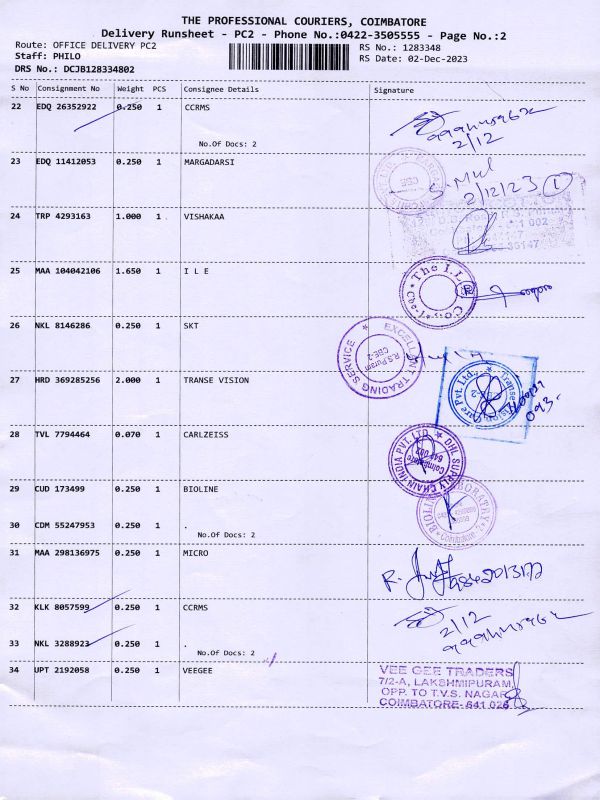 THE PROFESSIONAL COURIERS, COIMBATORE
Delivery Runsheet - PC2 - Phone No.:0422-3505555 - Page No.:2
Route: OFFICE DELIVERY PC2
Staff: PHILO
DRS No.: DCJB128334802
RS No.: 1283348
RS Date: 02-Dec-2023
S No Consignment No Weight PCS Consignee Details Signature
22 EDQ 26352922 0.250 1 CCRMS
No.Of Docs: 2
2/12
23 EDQ 11412053 0.250 1 MARGADARSI
2/12/23 1
24 TRP 4293163 1.000 1 VISHAKAA
25 MAA 104042106 1.650 1 I L E
The I.L.
26 NKL 8146286 0.250 1 SKT
EXCELLENT TRADING SERVICE
R.S.Puram
CBE-2
27 HRD 369285256 2.000 1 TRANSE VISION
28 TVL 7794464 0.070 1 CARLZEISS
DHL SUPPLY CHAIN INDIA PVT. LTD.
Coimbatore
29 CUD 173499 0.250 1 BIOLINE
30 CDM 55247953 0.250 1 .
No.Of Docs: 2
31 MAA 298136975 0.250 1 MICRO
32 KLK 8057599 0.250 1 CCRMS
2/12
33 NKL 3288923 0.250 1 .
No.Of Docs: 2
34 UPT 2192058 0.250 1 VEEGEE
VEE GEE TRADERS
7/2-A, LAKSHMIPURAM,
OPP. TO T.V.S. NAGAR
COIMBATORE- 641 025.